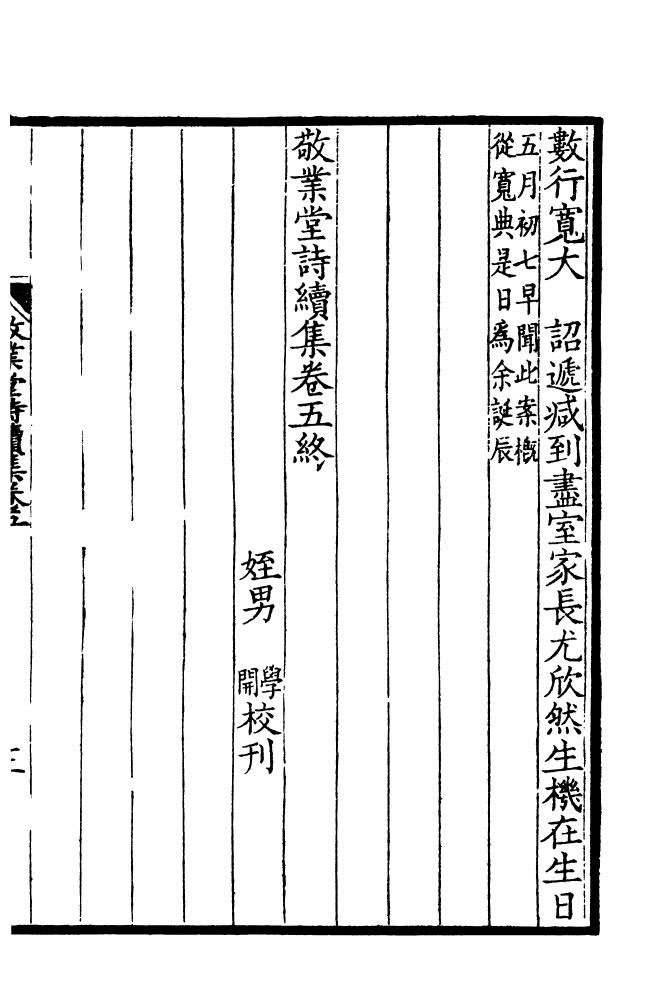 數行寬大　詔遞減到盡室家長尤欣然生機在生日
五月初七早聞此案概
從寬典是日為余誕辰
敬業堂詩續集卷五終
姪男　學
開
校刊
敬業堂詩續集卷五
三